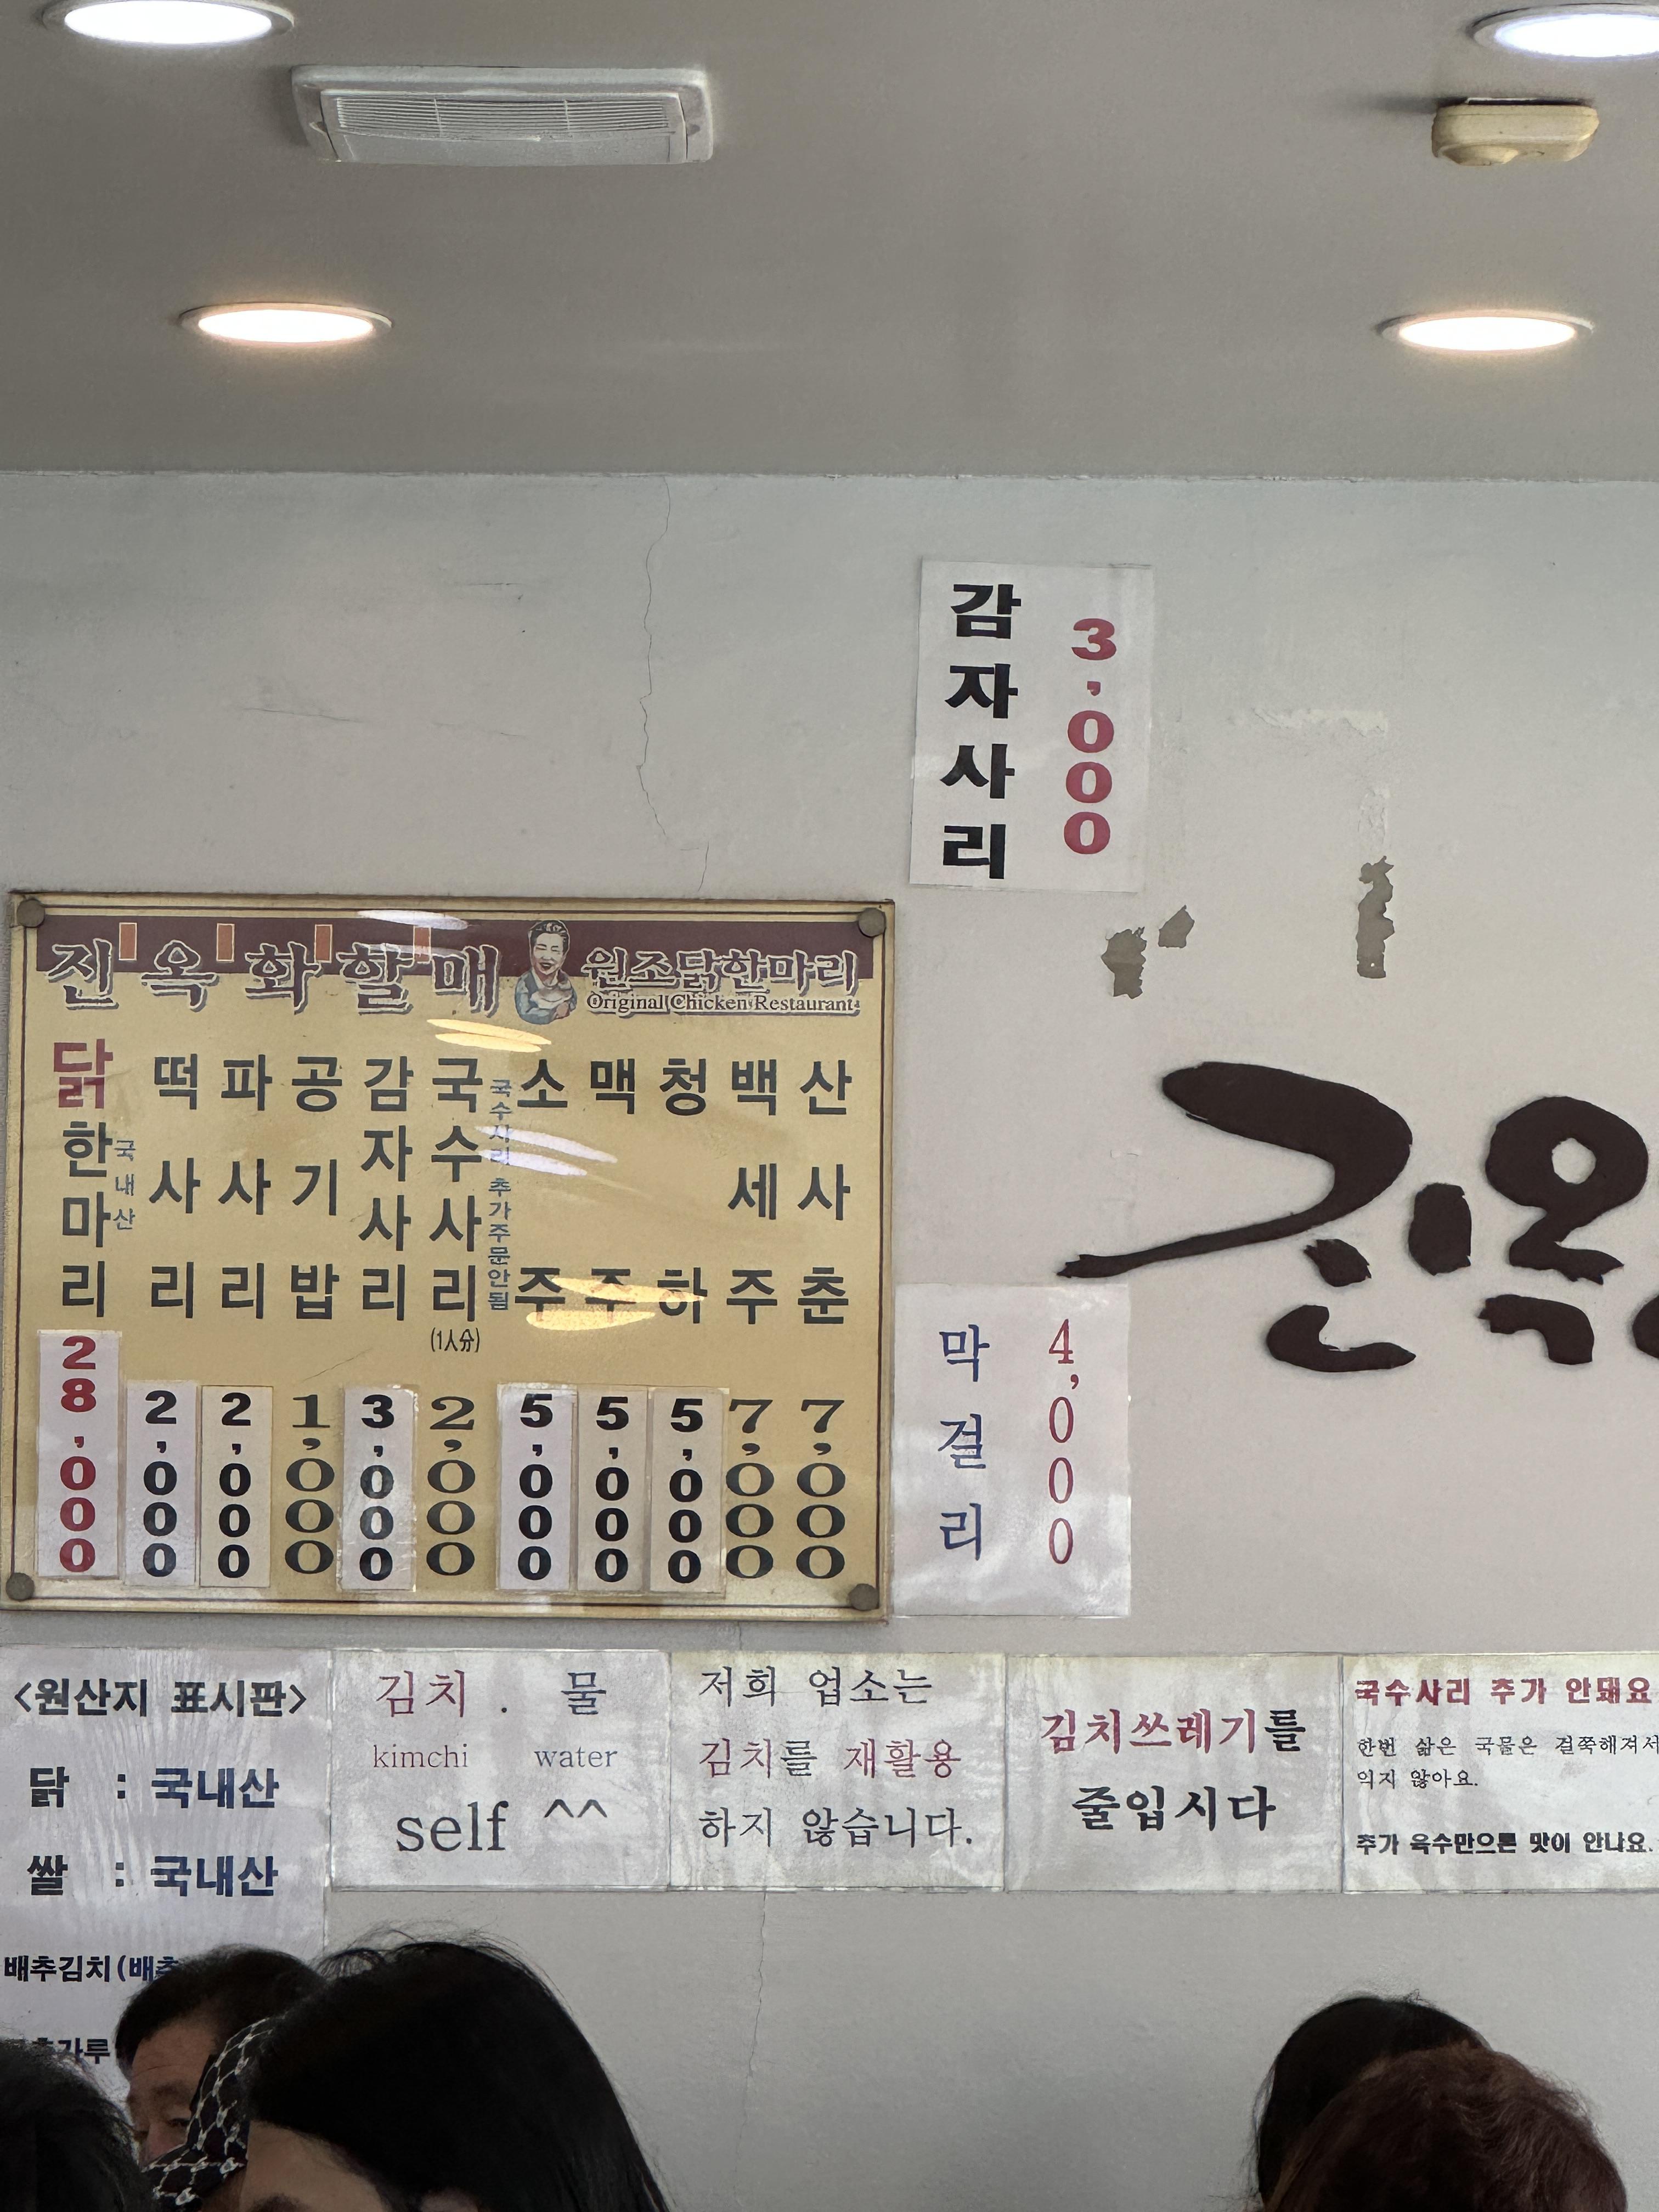 감자사리 3,000
진옥화할매 원조닭한마리
Original Chicken Restaurant
닭한마리 국내산 28,000
떡사리 2,000
파사리 2,000
공기밥 1,000
감자사리 3,000
국수사리 (1人分) 2,000
국수사리 추가주문안됨
소주 5,000
맥주 5,000
청하 5,000
백세주 7,000
산사춘 7,000
진옥
막걸리 4,000
<원산지 표시판>
닭 : 국내산
쌀 : 국내산
배추김치(배추
가루
김치 . 물
kimchi water
self ^^
저희 업소는
김치를 재활용
하지 않습니다.
김치쓰레기를
줄입시다
국수사리 추가 안돼요
한번 삶은 국물은 걸쭉해져서
익지 않아요.
추가 육수만으론 맛이 안나요.